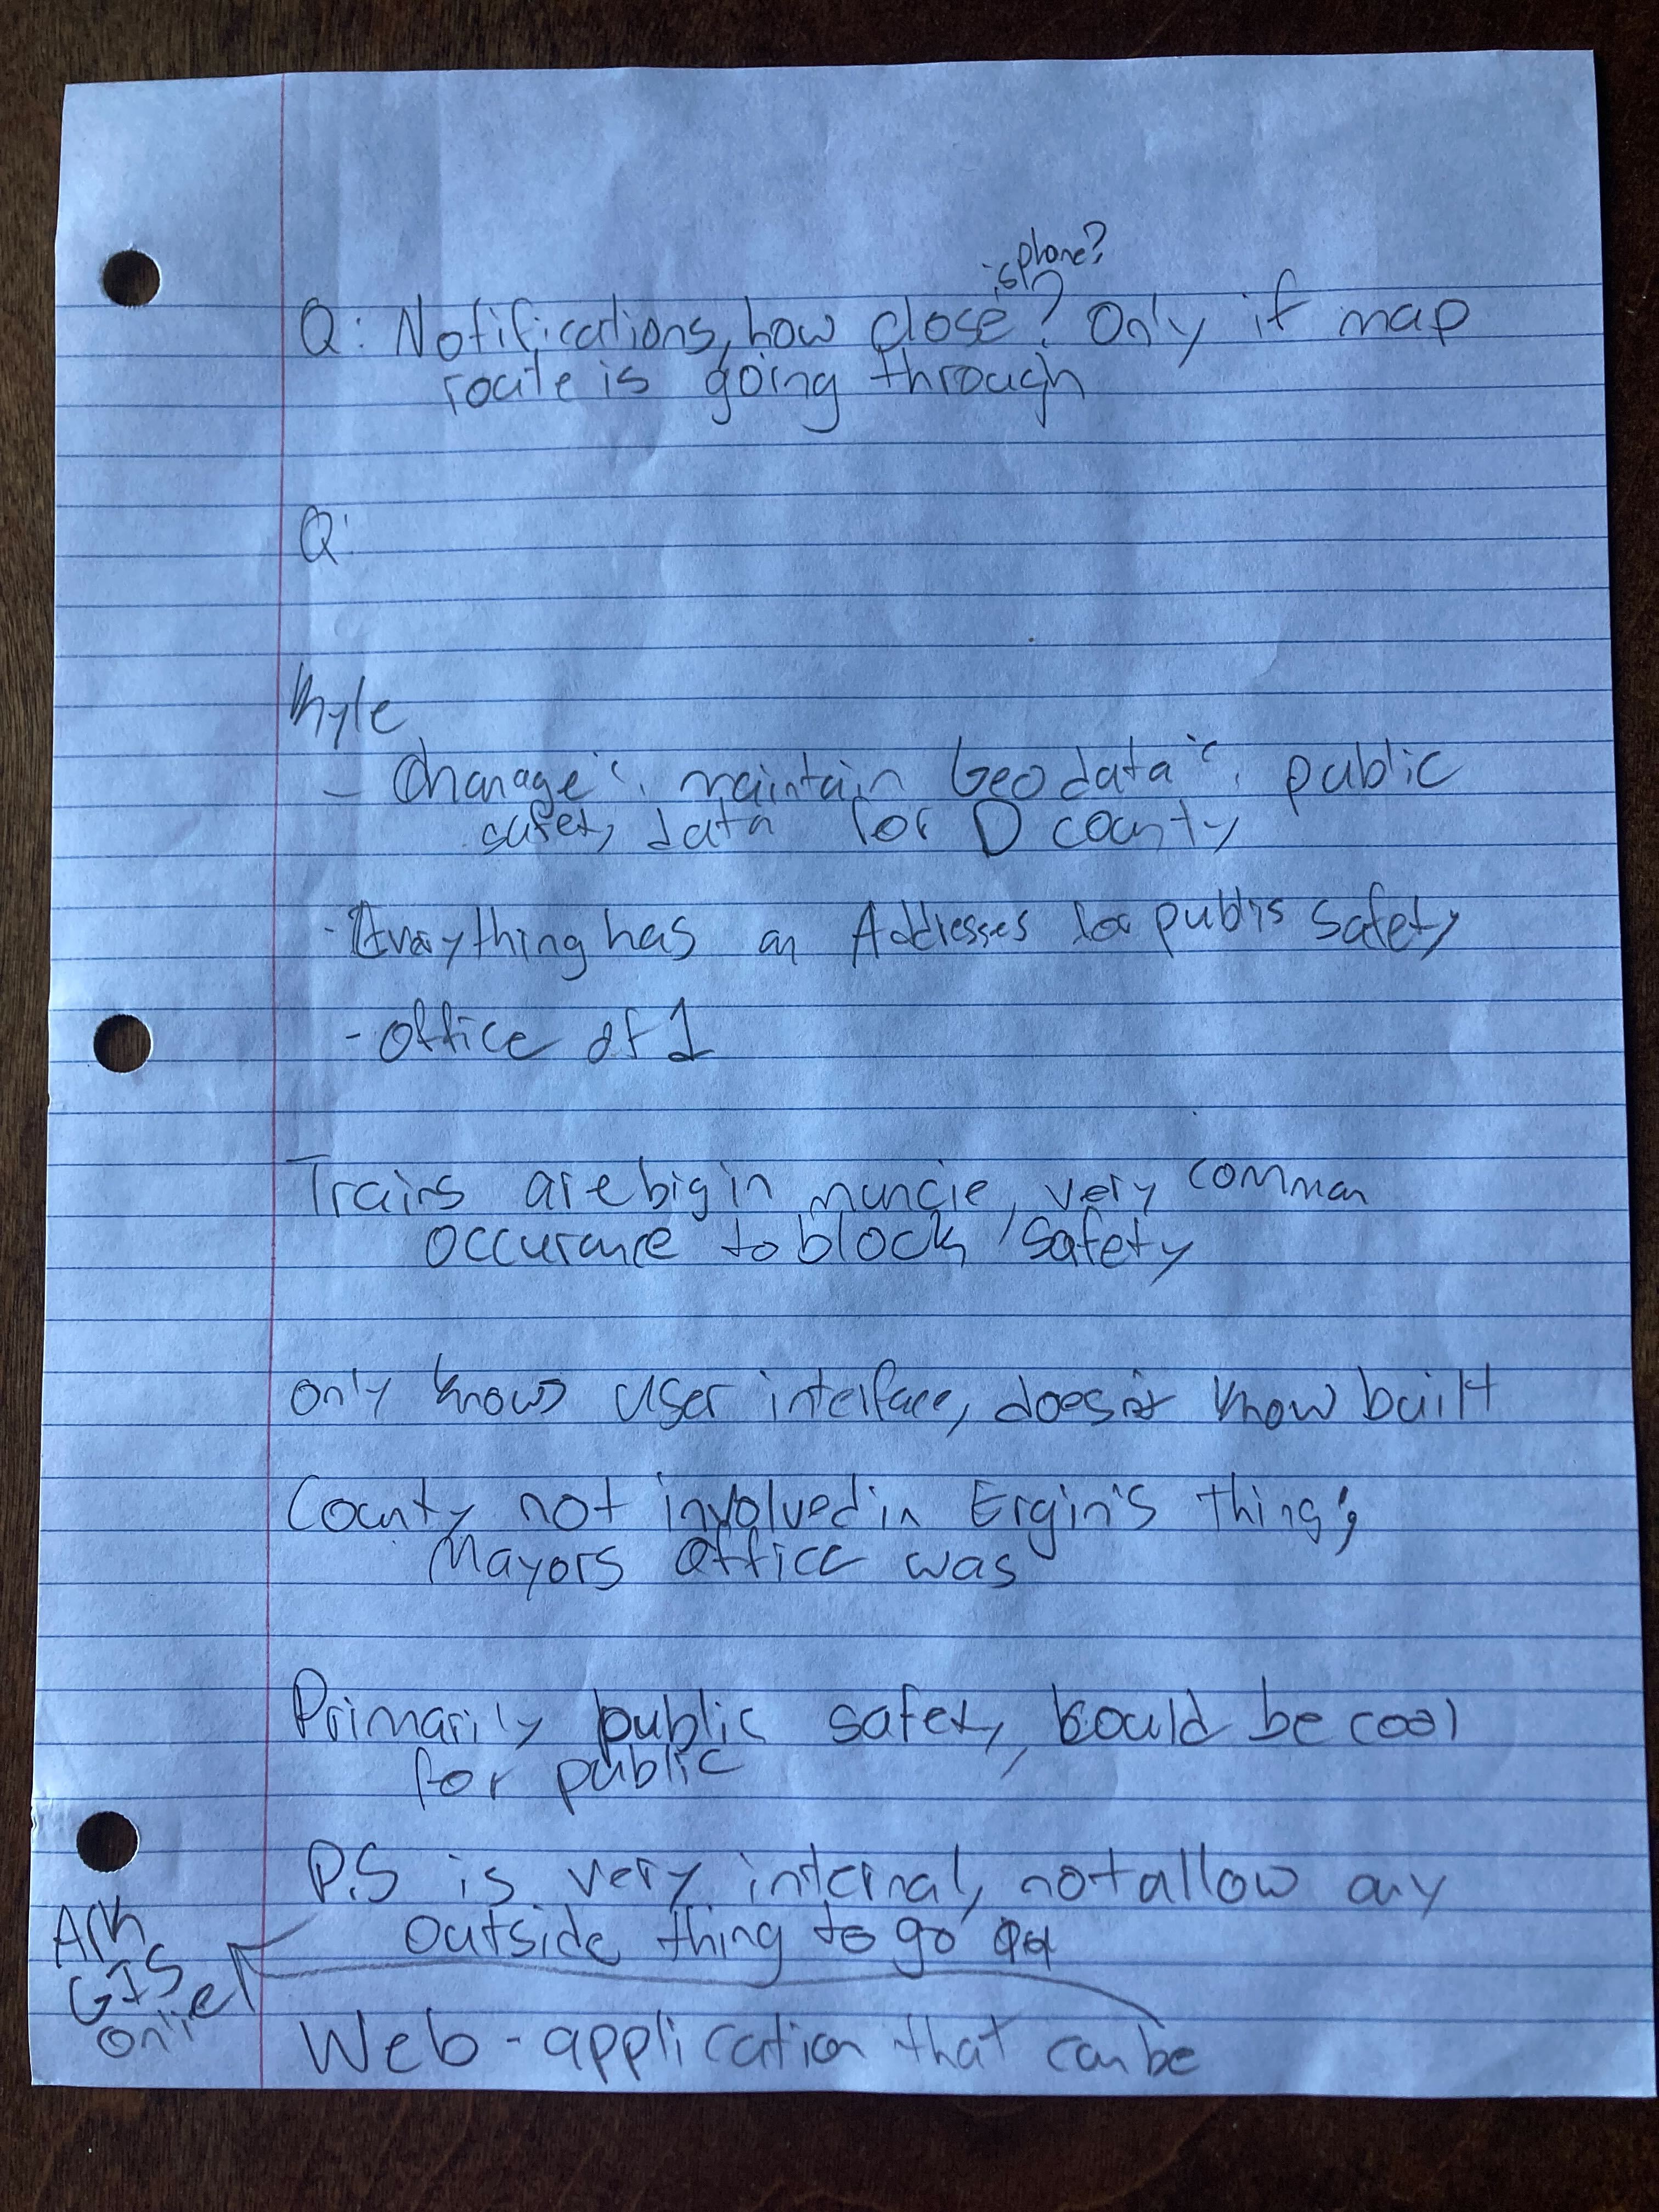 is phone?
Q: Notifications, how close? Only if map
route is going through
Q:
Kyle
- manage & maintain Geodata & public
safety data for D county
- Everything has an Addresses for public safety
- office of 1
Trains are big in muncie, very common
occurance to block / safety
only knows user interface, doesn't know built
County not involved in Ergin's thing;
Mayors office was
Primarily public safety, could be cool
for public
P.S is very internal, not allow any
outside thing to go
Ark
GIS
Online
Web-application that can be